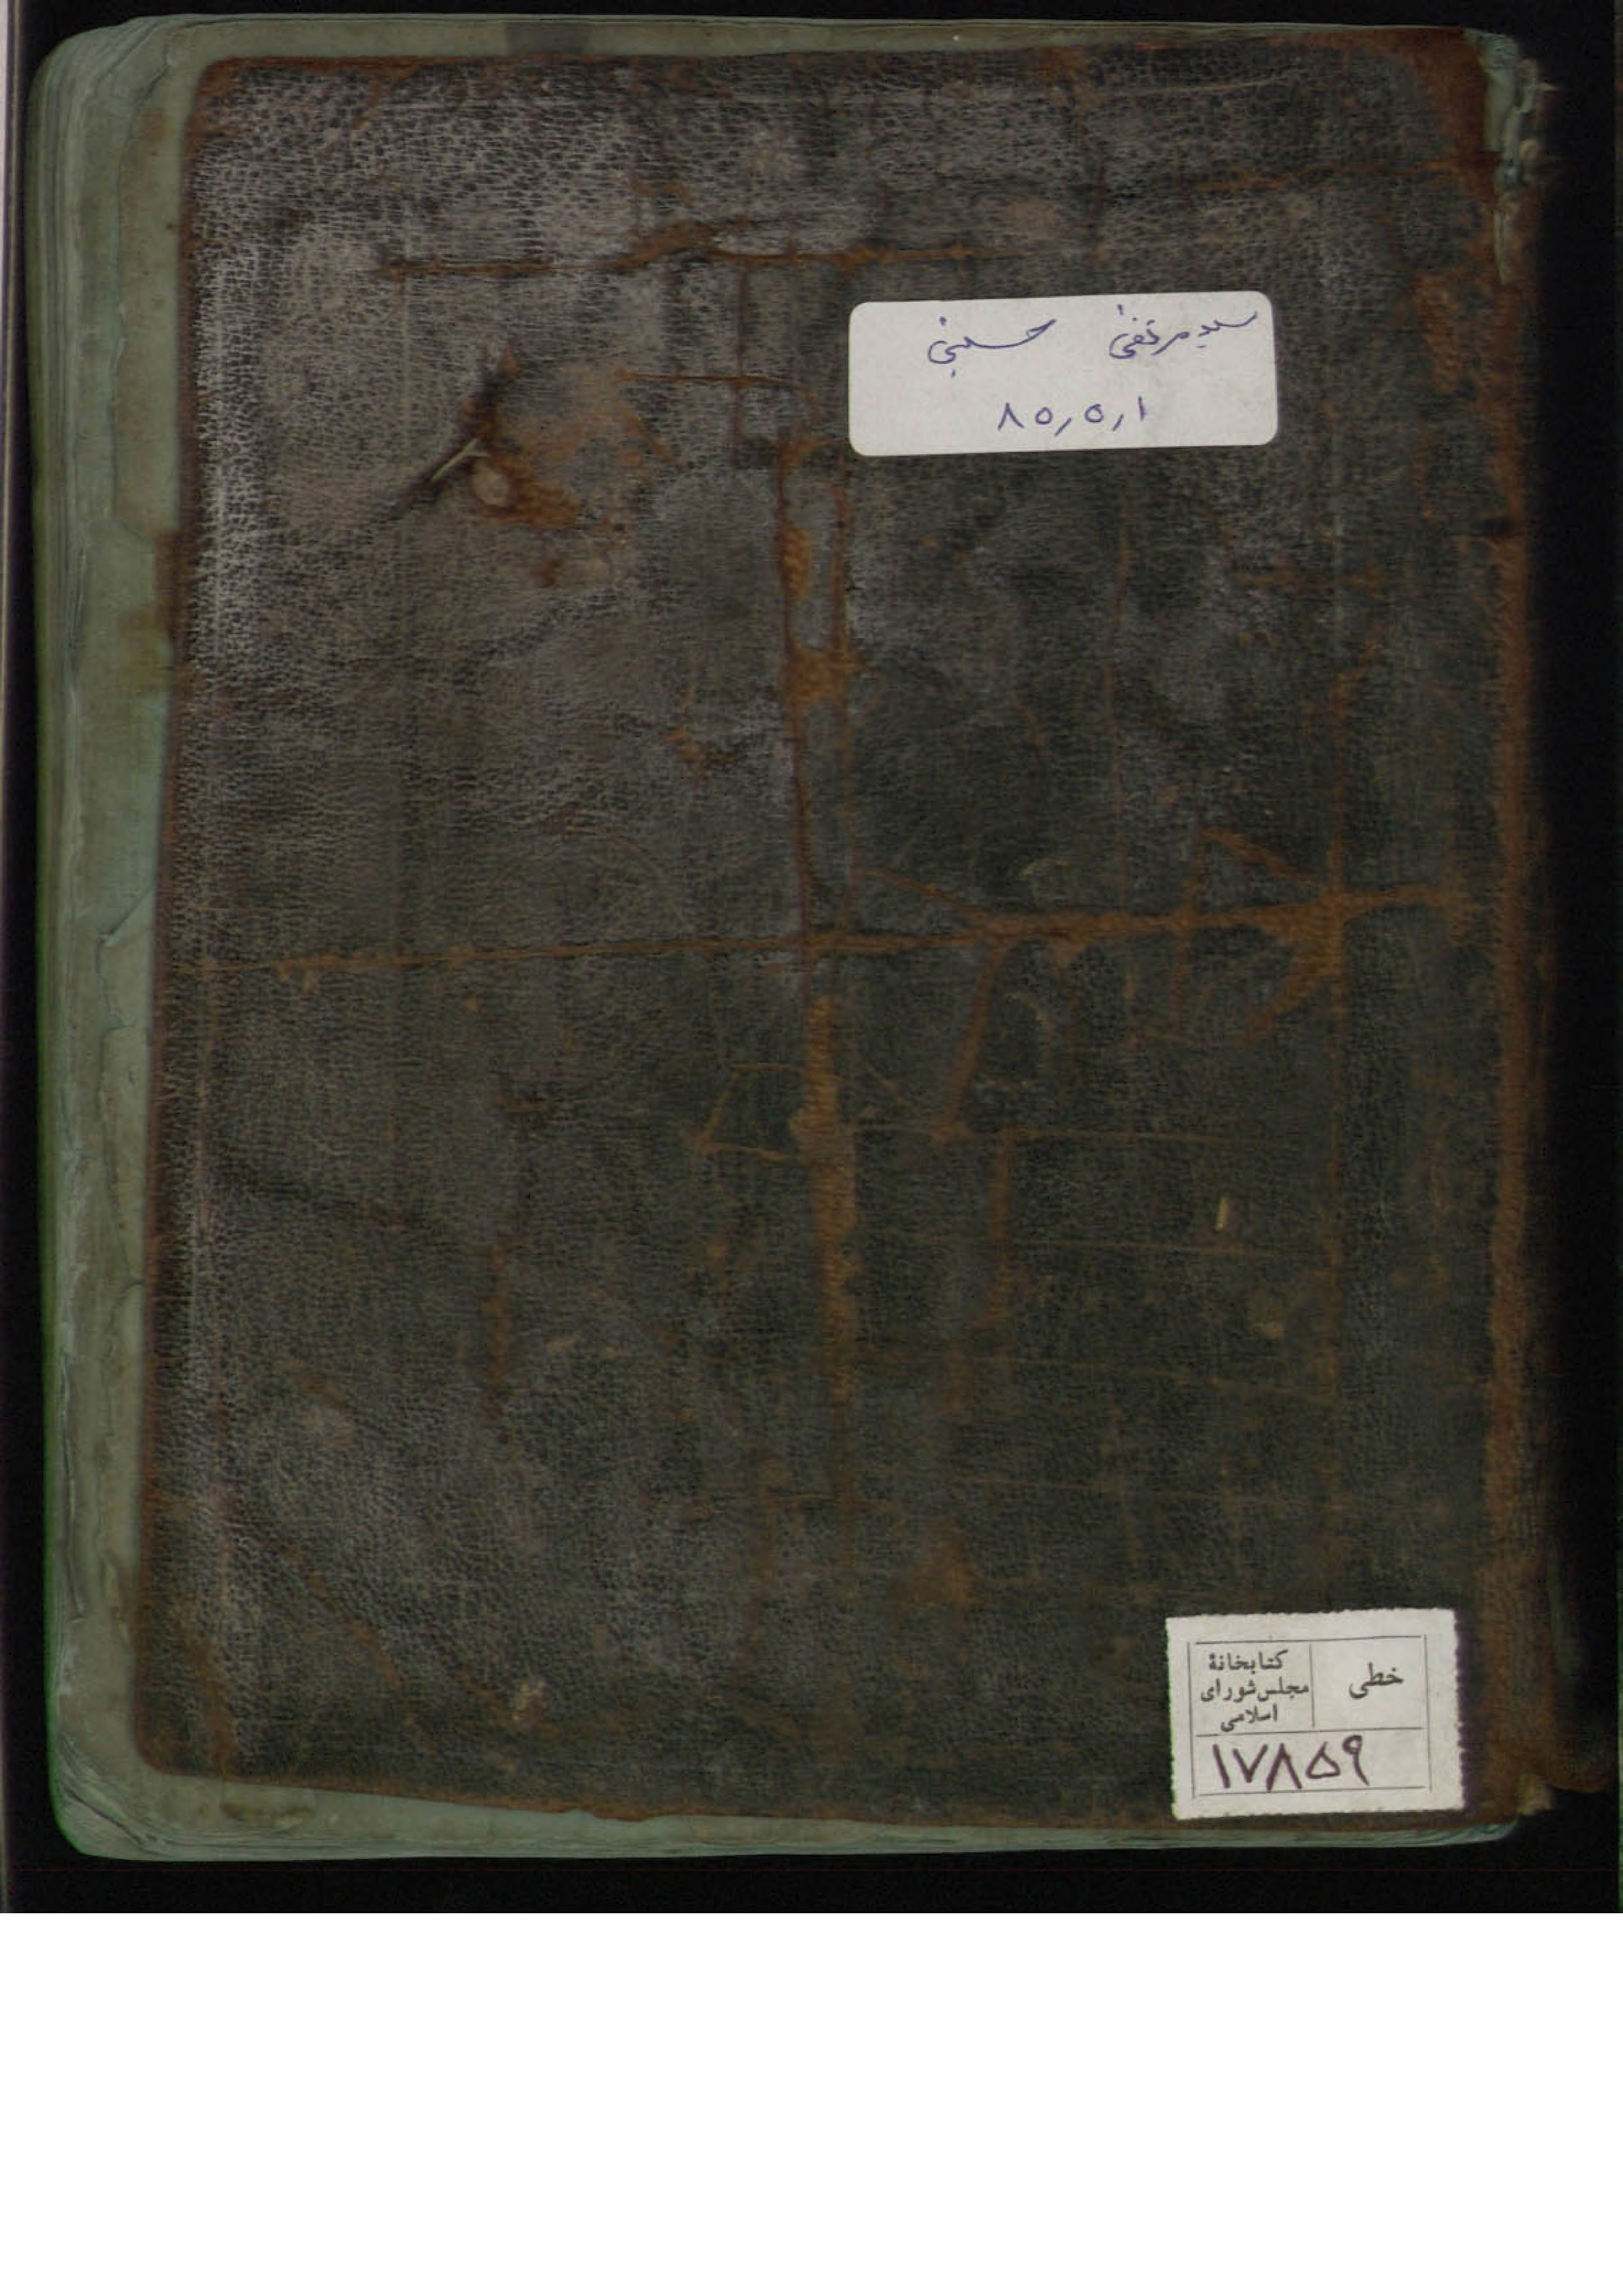 سیدمرتضی حسینی
۸۵٫۵٫۱
خطی
کتابخانهٔ
مجلس شورای
اسلامی
۱۷۸۵۹